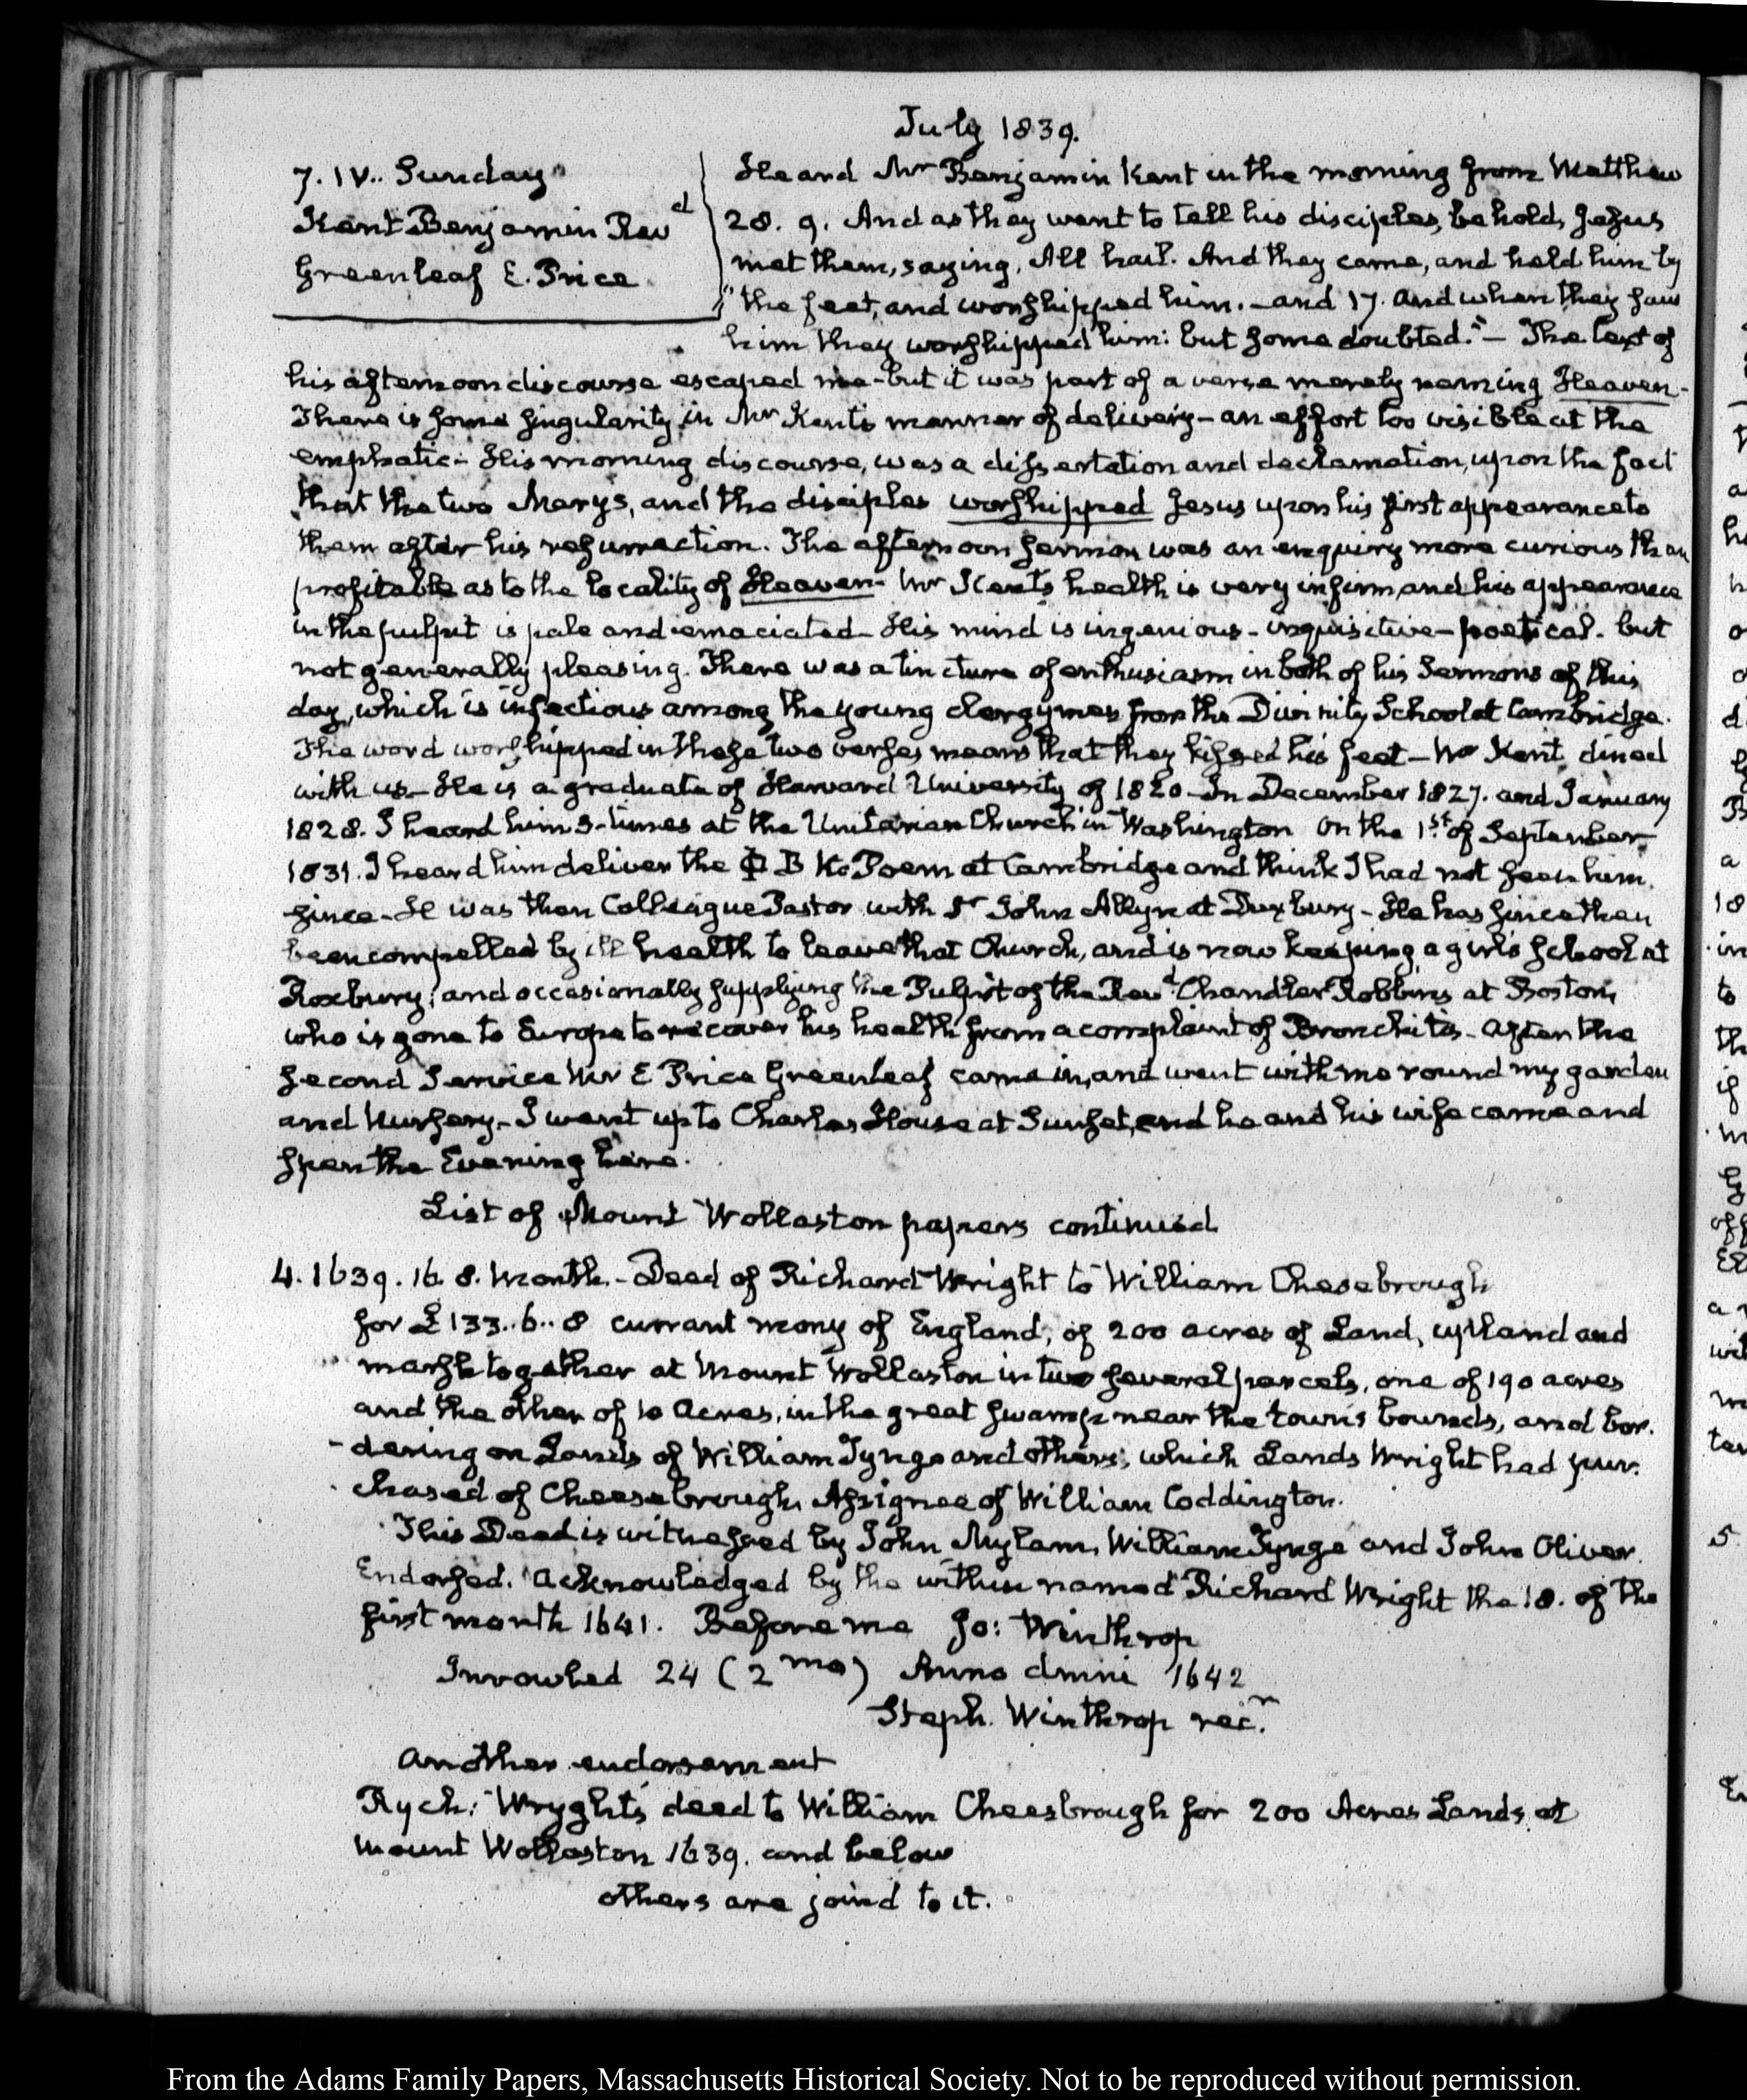 July 1839.
7. IV.. Sunday
Kent Benjamin Revd
Greenleaf E. Price
Heard Mr Benjamin Kent in the morning from Matthew
28. 9. And as they went to tell his disciples, behold, Jesus
met them, saying, All hail. And they came, and held him by
"the feet, and worshipped him. - and 17. And when they saw
him they worshipped him: but some doubted." - The text of
his afternoon discourse escaped me - but it was part of a verse merely naming Heaven -
There is some singularity in Mr Kent's manner of delivery - an effort too visible at the
emphatic - His morning discourse, was a dissertation and declamation, upon the fact
that the two Marys, and the disciples worshipped Jesus upon his first appearance to
them after his resurrection. The afternoon sermon was an enquiry more curious than
profitable as to the locality of Heaven - Mr Kent's health is very infirm, and his appearance
in the pulpit is pale and emaciated - His mind is ingenious - inquisitive - poetical - but
not generally pleasing. There was a tincture of enthusiasm in both of his Sermons of this
day, which is infectious among the young clergymen from the Divinity School at Cambridge.
The word worshipped in these two verses means that they kissed his feet - Mr Kent dined
with us - He is a graduate of Harvard University of 1820 - In December 1827. and January
1828. I heard him 3 times at the Unitarian Church in Washington On the 1st of September
1831. I heard him deliver the Φ B K. Poem at Cambridge and think I had not seen him
since - He was then Colleague Pastor with Dr John Allyn at Duxbury - He has since then
been compelled by ill health to leave that Church, and is now keeping a girl's school at
Roxbury; and occasionally supplying the Pulpit of the Revd Chandler Robbins at Boston,
who is gone to Europe to recover his health from a complaint of Bronchitis - After the
second Service Mr E Price Greenleaf came in, and went with me round my garden
and Nursery - I went up to Charles's House at Sunset, and he and his wife came and
spen the Evening here.
List of Mount Wollaston papers continued
4. 1639. 16. 8. Month. - Deed of Richard Wright to William Chesebrough
for £133..6..8 currant mony of England, of 200 acres of Land, upland and
marsh together at Mount Wollaston in two several parcels, one of 190 acres
and the other of 10 Acres, in the great swamp near the town's bounds, and bor-
-dering on Lands of William Tynge and others; which Lands Wright had pur-
chased of Cheesebrough Assignee of William Coddington.
This Deed is witnessed by John Mylam, William Tynge and John Oliver.
Endorsed. Acknowledged by the within named Richard Wright the 18. of the
first month 1641. Before me Jo: Winthrop
Inrowled 24 (2mo) Anno dmni 1642
Steph. Winthrop recr.
Another endorsement
Rych: Wryght's deed to William Cheesbrough for 200 Acres Lands at
Mount Wollaston 1639. and below
others are joind to it.
From the Adams Family Papers, Massachusetts Historical Society. Not to be reproduced without permission.